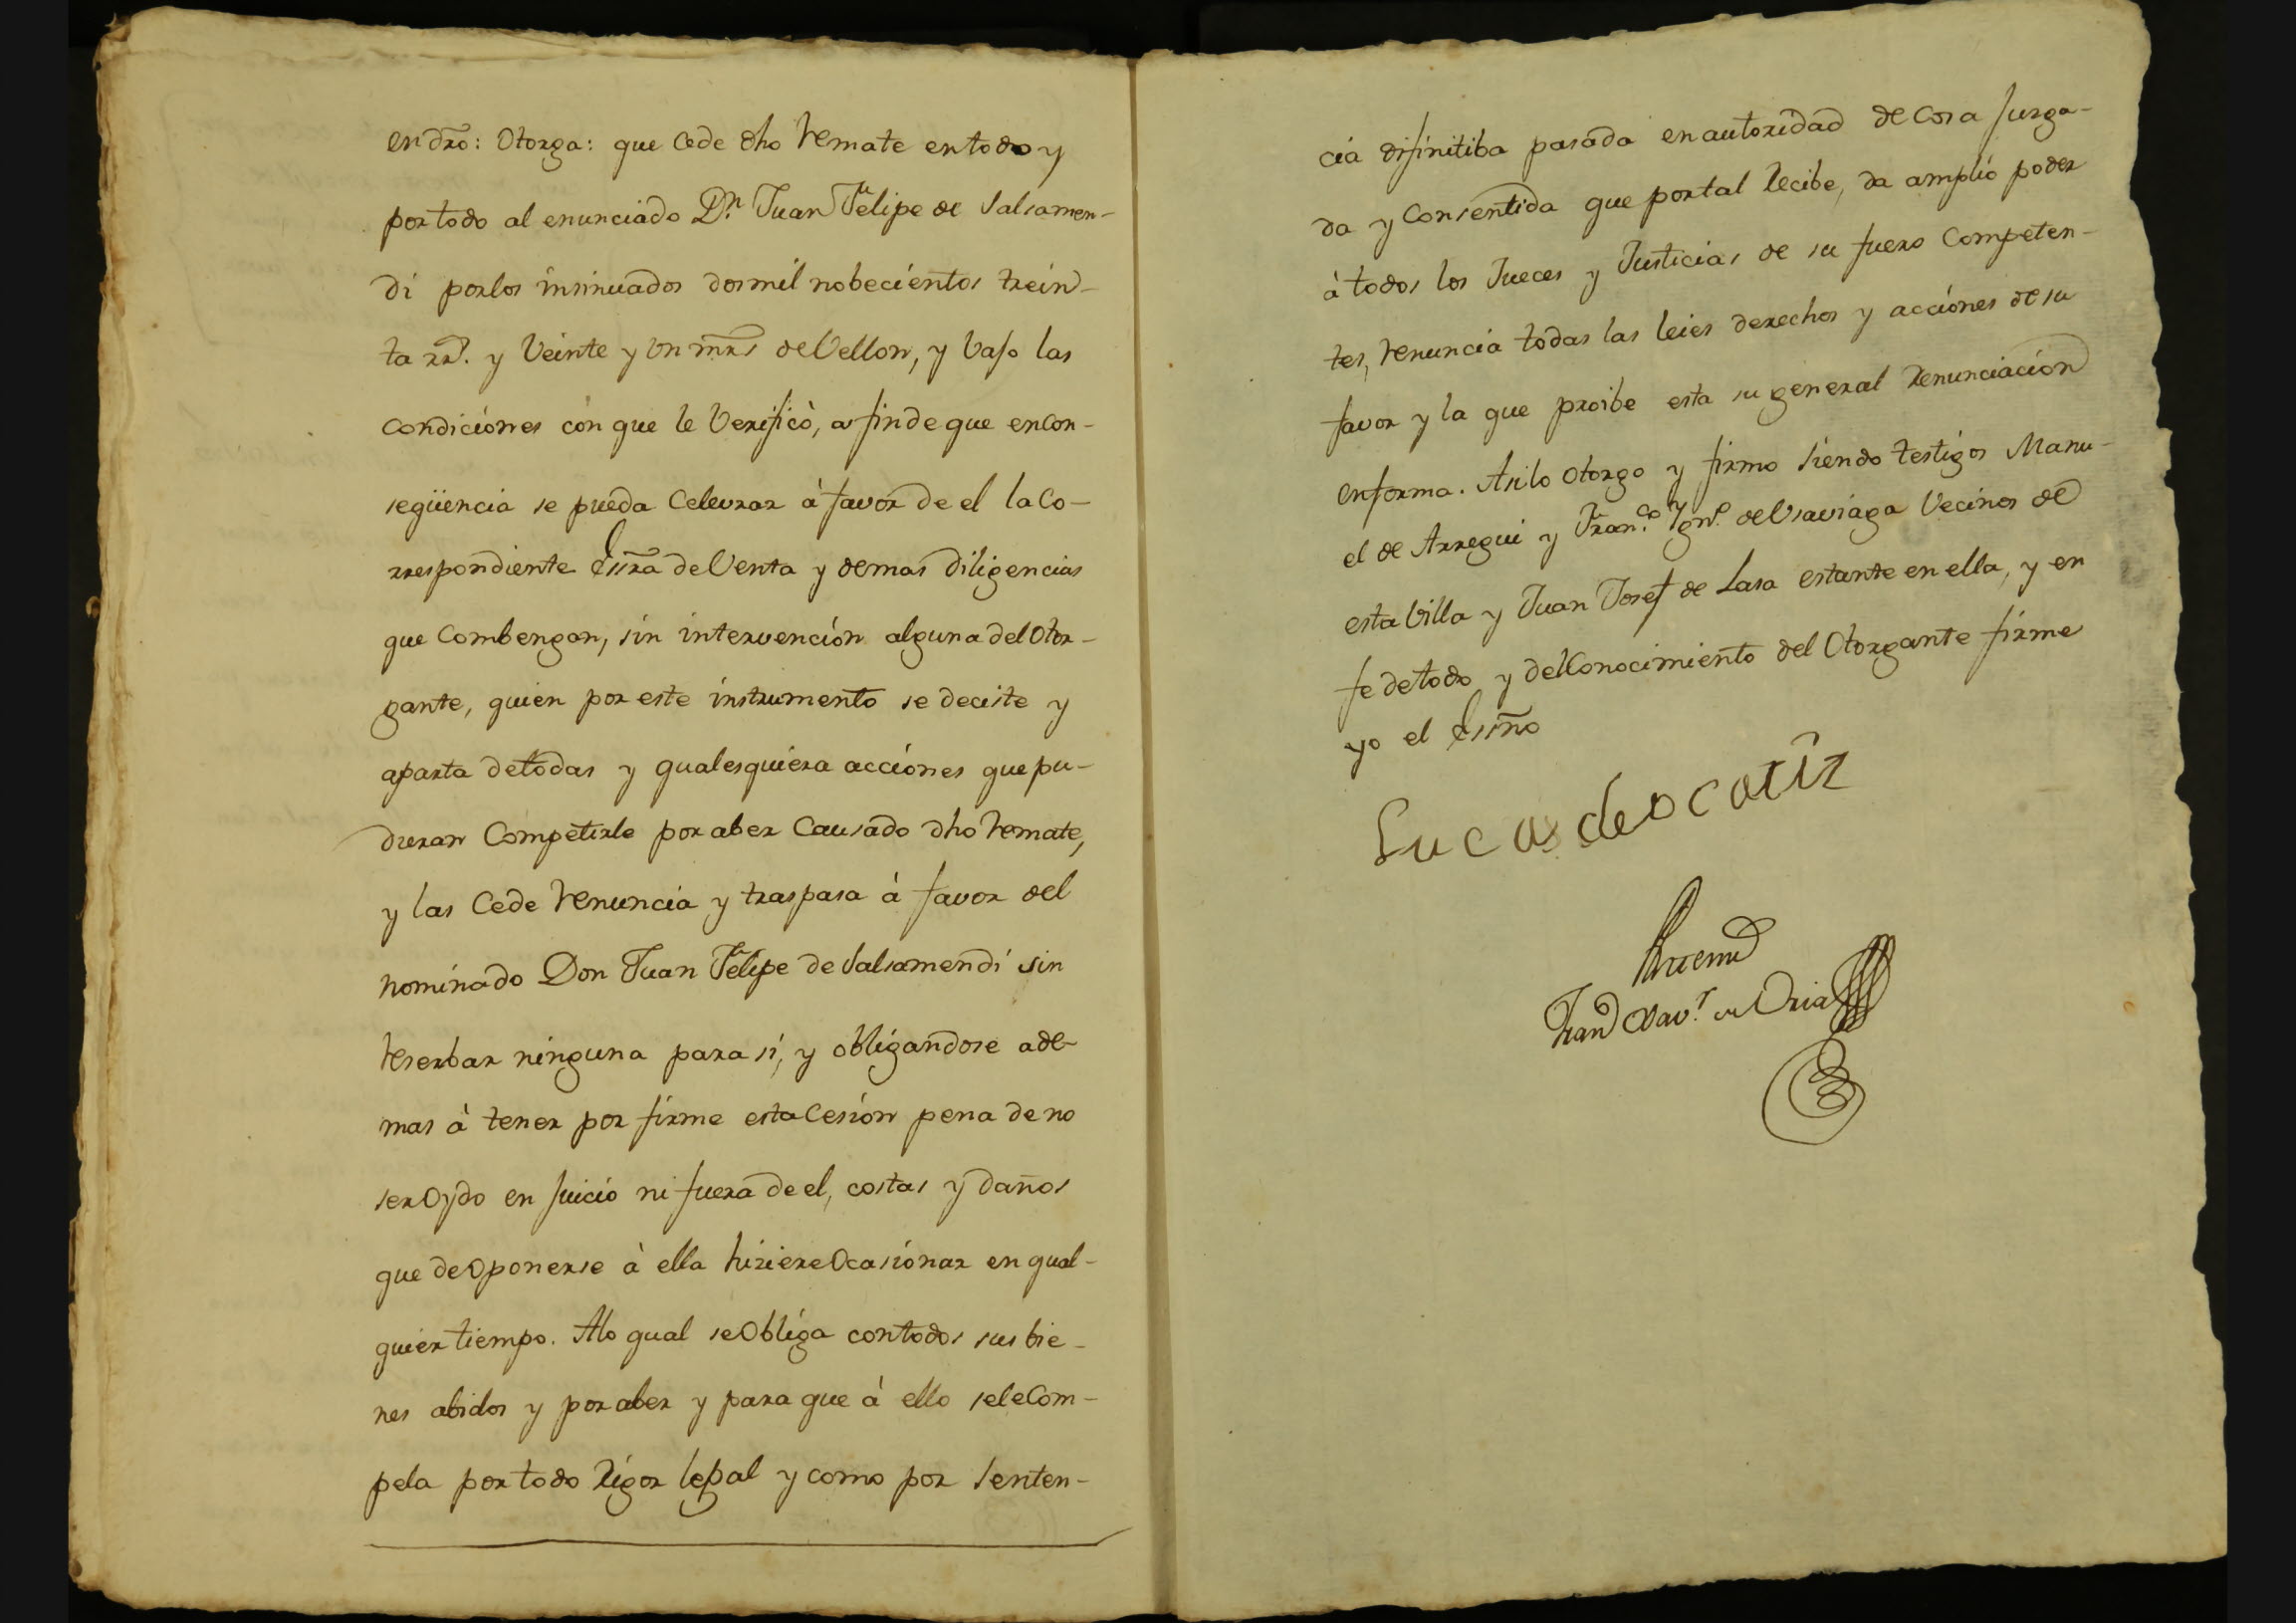 en dro: Otorga: que Cede dho Remate en todo y
por todo al enunciado Dn. Juan Felipe de Salsamen-
di por los insinuados dos mil nobecientos trein-
ta rr.s y Veinte y Un mrs de Vellon, y bajo las
Condiciones con que le Verificò, a fin de que en con-
seqüencia se pueda Celevrar à favor de el la Co-
rrespondiente Essra de Venta y demas diligencias
que Combengan, sin intervención alguna del Otor-
gante, quien por este instrumento se deciste y
aparta de todas y qualesquiera acciones que pu-
dieran Competirle por aber Causado dho Remate,
y las Cede Renuncia y traspasa à favor del
nominado Don Juan Felipe de Salsamendi sin
Reserbar ninguna para si, y obligandose ade-
mas à tener por firme esta Cesión pena de no
ser Oydo en Juicio ni fuera de el, costas y daños
que de Oponerse à ella hiziere Ocasionar en qual-
quier tiempo. A lo qual se Obliga con todos sus bie-
nes abidos y por aber y para que à ello se le Com-
pela por todo Rigor legal y como por Senten-
cia difinitiba pasada en autoridad de Cosa Juzga-
da y Consentida que por tal Recibe, da amplio poder
à todos los Jueces y Justicias de su fuero Competen-
tes, Renuncia todas las leies derechos y acciones de su
favor y la que proibe esta su general Renunciación
en forma. Asi lo Otorgo y firmo siendo testigos Manu-
el de Arregui y Fran.co Ygn.o de Usaviaga Vecinos de
esta Villa y Juan Josef de Lasa estante en ella, y en
fe de todo y del Conocimiento del Otorgante firme
yo el Essno
Lucas de ocariz
Antemi
Fran Xav.r de Oria